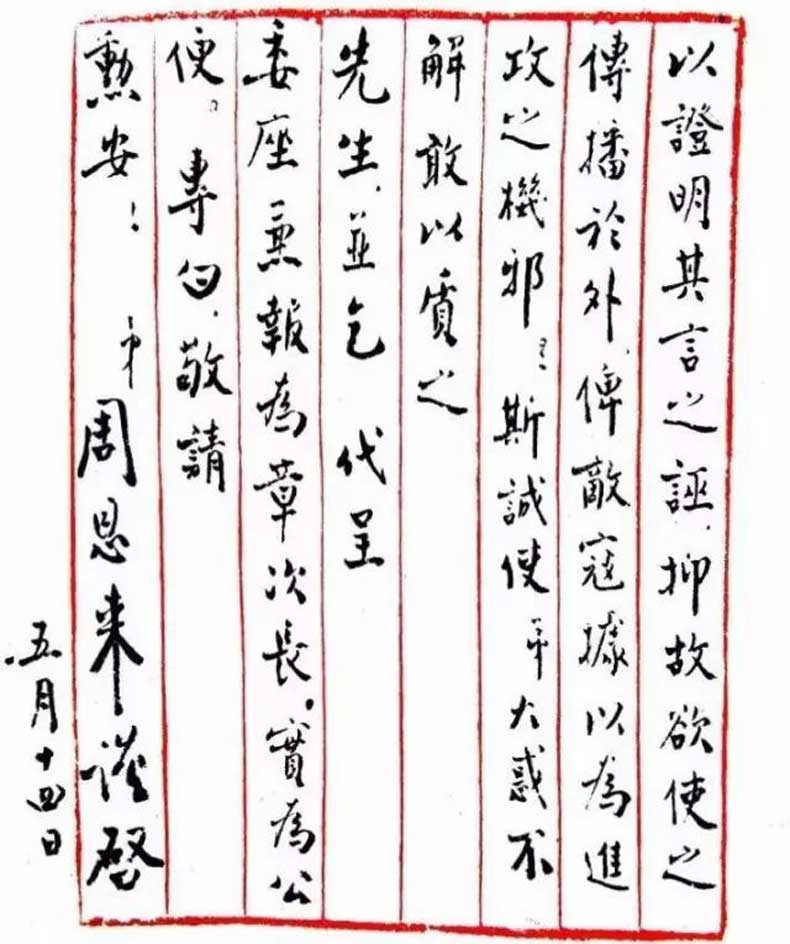 以證明其言之誣、抑故欲使之
傳播於外、俾敵寇據以為進
攻之機邪？斯誠使弟大惑不
解敢以質之
先生、並乞 代呈
委座 報為 次長。實為公
便。專 、敬請
勳安！ 弟周恩來謹啓
五月十四日